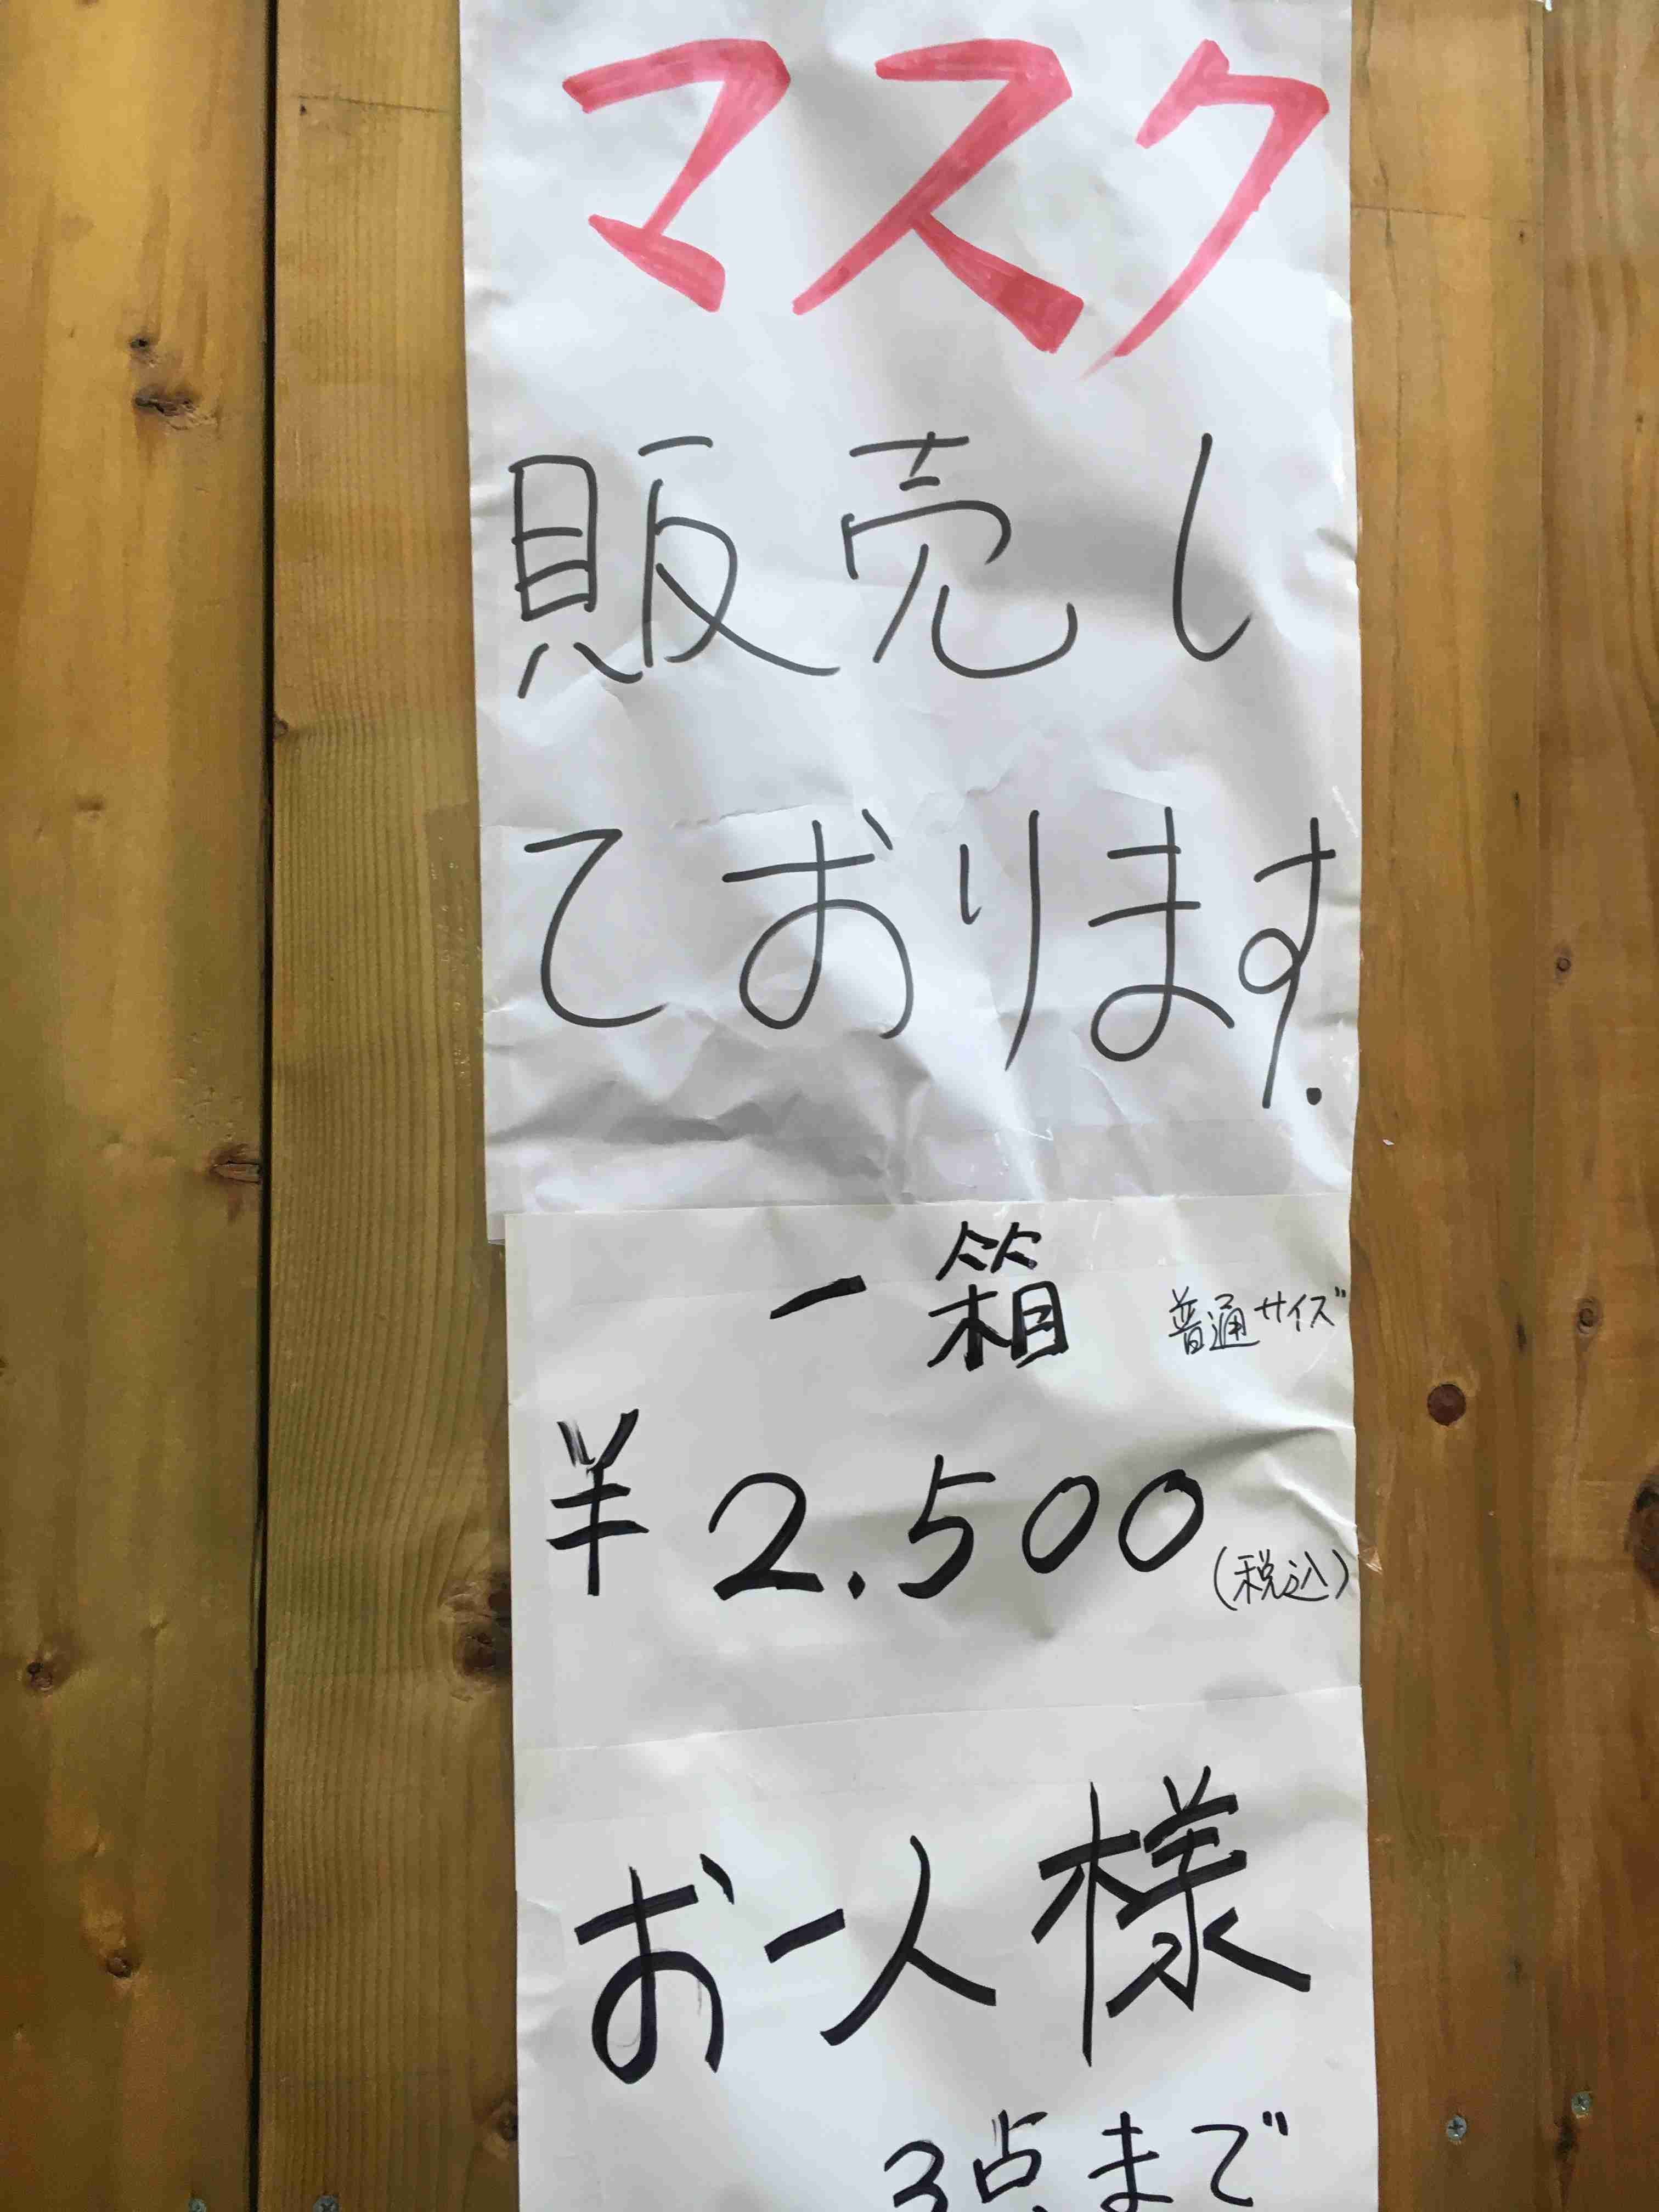 マスク
販売し
ております.
一箱 普通サイズ
¥2.500(税込)
お一人様
3点まで